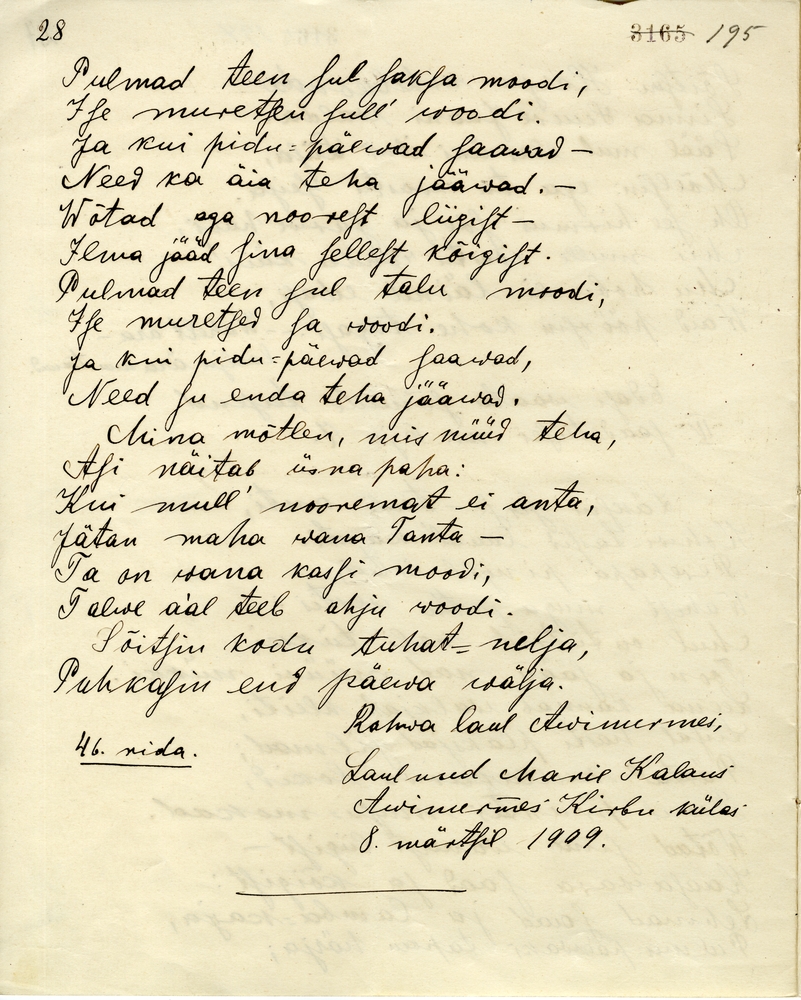 28
3165 195
Pulmad teen sul saksa moodi,
Ise muretsen sull' woodi.
Ja kui pidu=päewad saawad —
Need ka äia teha jääwad. —
Wõtad aga noorest liigist —
Ilma jääd sina sellest kõigist.
Pulmad teen sul talu moodi,
Ise muretsed sa woodi.
Ja kui pidu=päewad saawad,
Need su enda teha jääwad.
Mina mõtlen, mis nüüd teha,
Asi näitab üsna paha:
Kui mull' nooremat ei anta,
Jätan maha wana Tanta —
Ta on wana kassi moodi,
Talwe a'al teeb ahju woodi.
Sõitsin kodu tuhat=nelja,
Puhkasin end päewa wälja.
Rahwa laul Awinurmes,
46. rida.
Laulnud Marie Kalaus
Awinurmes Kirbu külas
8. märtsil 1909.